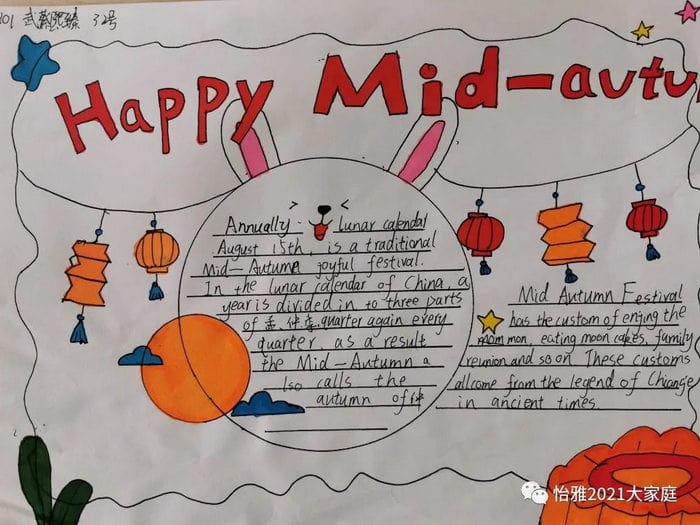 32号
Happy Mid-autu
Annually. lunar calendar
August 15th, is a traditional
Mid-Autumn joyful festival.
In the lunar calendar of China, a
year is divided in to three parts
of 孟 仲 季 quarter again every
quarter, as a result
the Mid-Autumn a
lso calls the
autumn of 仲
Mid Autumn Festival
has the custom of enjing the
mom mon, eating moon cakes, family
reunion and so on. These customs
all come from the legend of Chiange
in ancient times.
怡雅2021大家庭